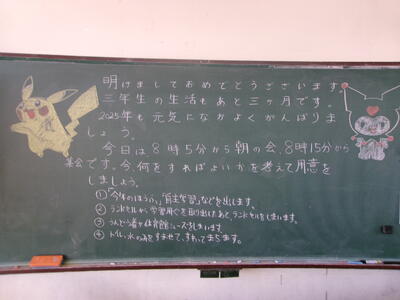 明けましておめでとうございます。
三年生の生活もあと三ヶ月です。
2025年も元気になかよくがんばりま
しょう。
今日は8時5分から朝の会、8時15分から
業です。今、何をすればよいかを考えて用意を
しましょう。
①「今年のほうふ」、「自主学習」などを出します。
② ランドセルから学習用ぐを取り出したあと、ランドセルをしまいます。
③ うんどう着や体育館シューズをしまいます。
④ トイレ、水のみをすませて、すわってまちます。